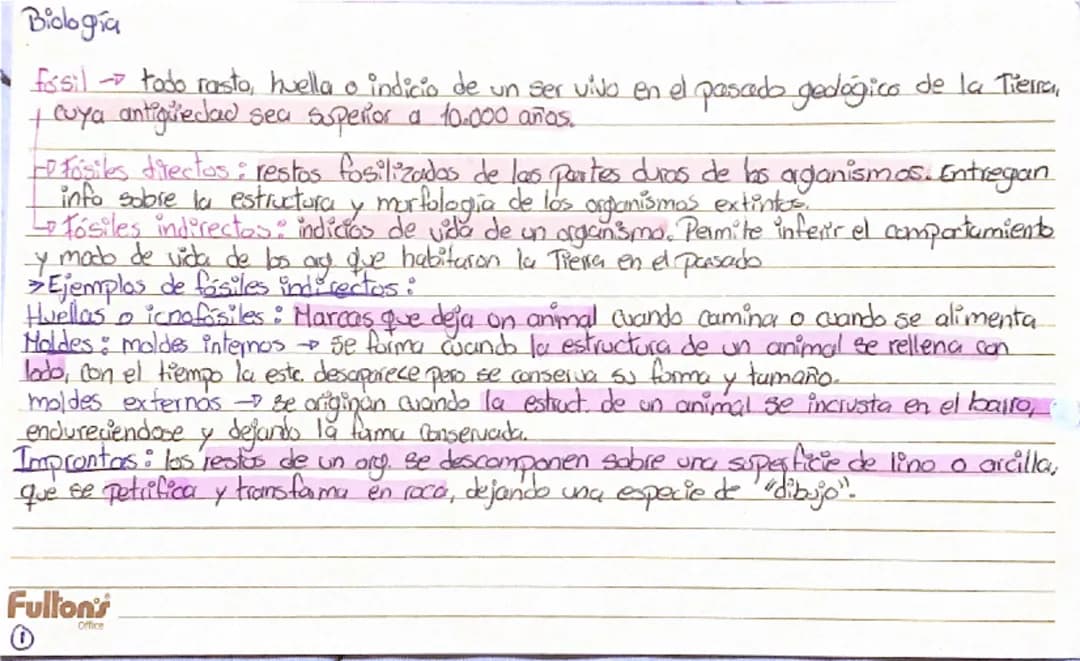 Biología
fósil → todo rasto, huella o indicio de un ser vivo en el pasado geológico de la Tierra,
cuya antigüedad sea superior a 10.000 años.
→ Fósiles directos: restos fosilizados de las partes duras de los organismos. Entregan
info sobre la estructura y morfología de los organismos extintos.
→ Fósiles indirectos: indicios de vida de un organismo. Permite inferir el comportamiento
y modo de vida de los org que habitaron la Tierra en el pasado
> Ejemplos de fósiles indirectos:
Huellas o icnofósiles: Marcas que deja un animal cuando camina o cuando se alimenta
Moldes: moldes internos → se forma cuando la estructura de un animal se rellena con
lodo, con el tiempo la estc. desaparece pero se conserva su forma y tamaño.
moldes externos → se originan cuando la estruct. de un animal se incrusta en el barro,
endureciendose y dejando la forma conservada.
Improntas: los restos de un org. se descomponen sobre una superficie de lino o arcilla,
que se petrifica y transforma en roca, dejando una especie de "dibujo".
Fulton's
Office
1